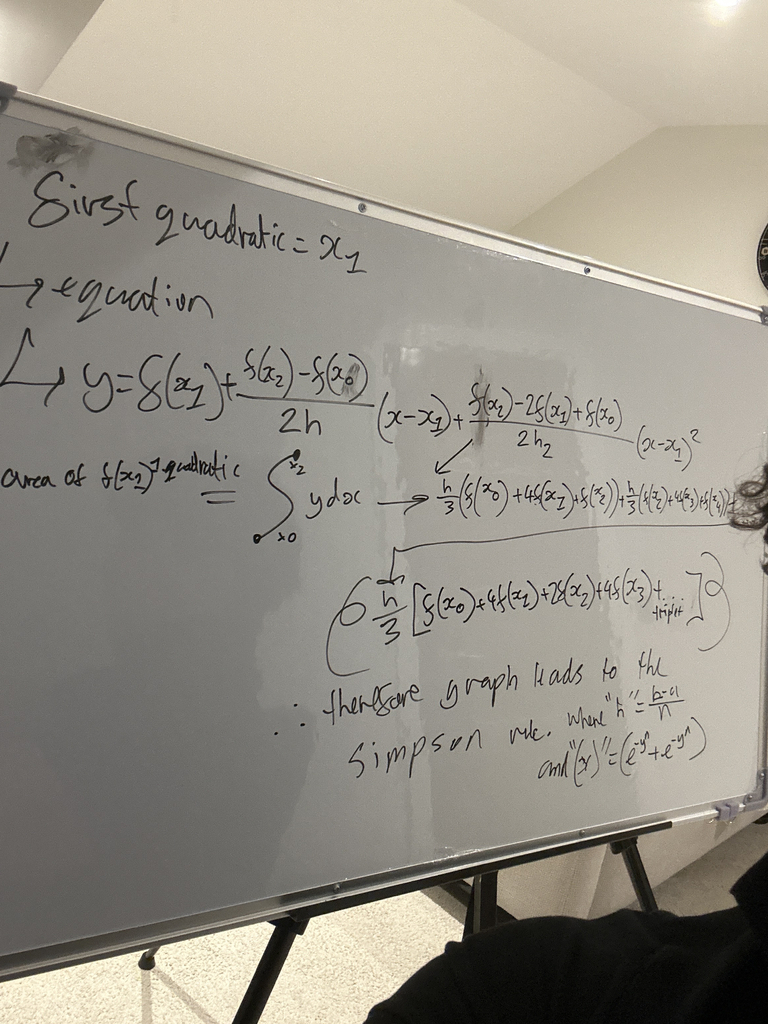 first quadratic = x₁
↳ equation
↳ y = f(x₁) + f(x₂) - f(x₀) / 2h (x - x₁) + f(x₂) - 2f(x₁) + f(x₀) / 2h₂ (x - x₁)²
area of f(x₁) quadratic = ∫ x₀ x₂ y dx → h/3 (f(x₀) + 4f(x₁) + f(x₂)) + h/3 (f(x₂) + 4f(x₃) + f(x₄)) +
h/3 [f(x₀) + 4f(x₁) + 2f(x₂) + 4f(x₃) + ]
∴ therefore graph leads to the
Simpson rule. where "h" = b-a/n
and "(x)" = (e^-yⁿ + e^-yⁿ)